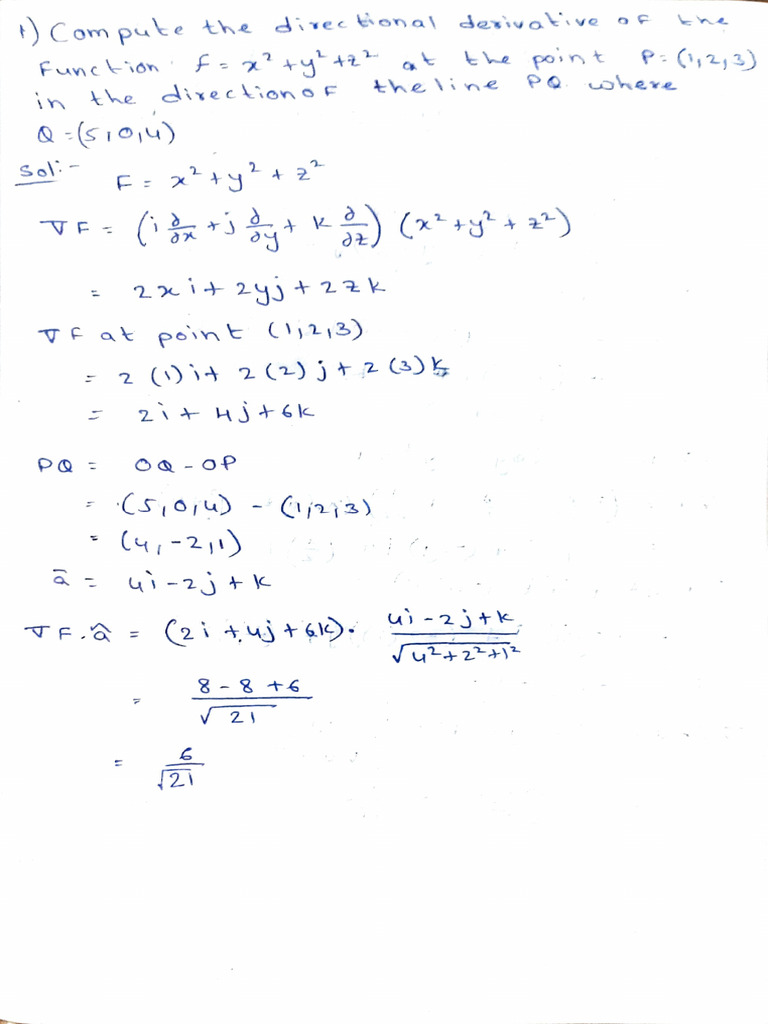 1) Compute the directional derivative of the
Function f = x² + y² + z² at the point P = (1,2,3)
in the direction of the line PQ where
Q = (5,0,4)
Sol:-
F = x² + y² + z²
∇F = (i ∂/∂x + j ∂/∂y + k ∂/∂z) (x² + y² + z²)
= 2xi + 2yj + 2zk
∇F at point (1,2,3)
= 2(1)i + 2(2)j + 2(3)k
= 2i + 4j + 6k
PQ = OQ - OP
= (5,0,4) - (1,2,3)
= (4,-2,1)
a̅ = 4i - 2j + k
∇F.â = (2i + 4j + 6k). (4i - 2j + k)/√(4² + 2² + 1²)
= (8 - 8 + 6)/√21
= 6/√21